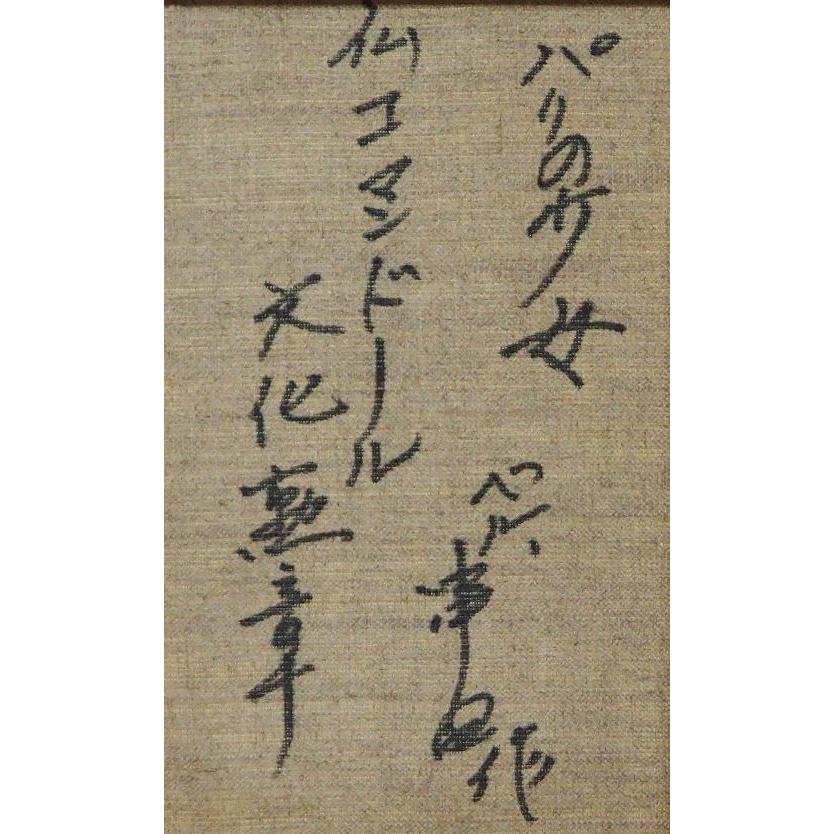 パリの少女
ベル串田作
仏コマンドール
文化勲章